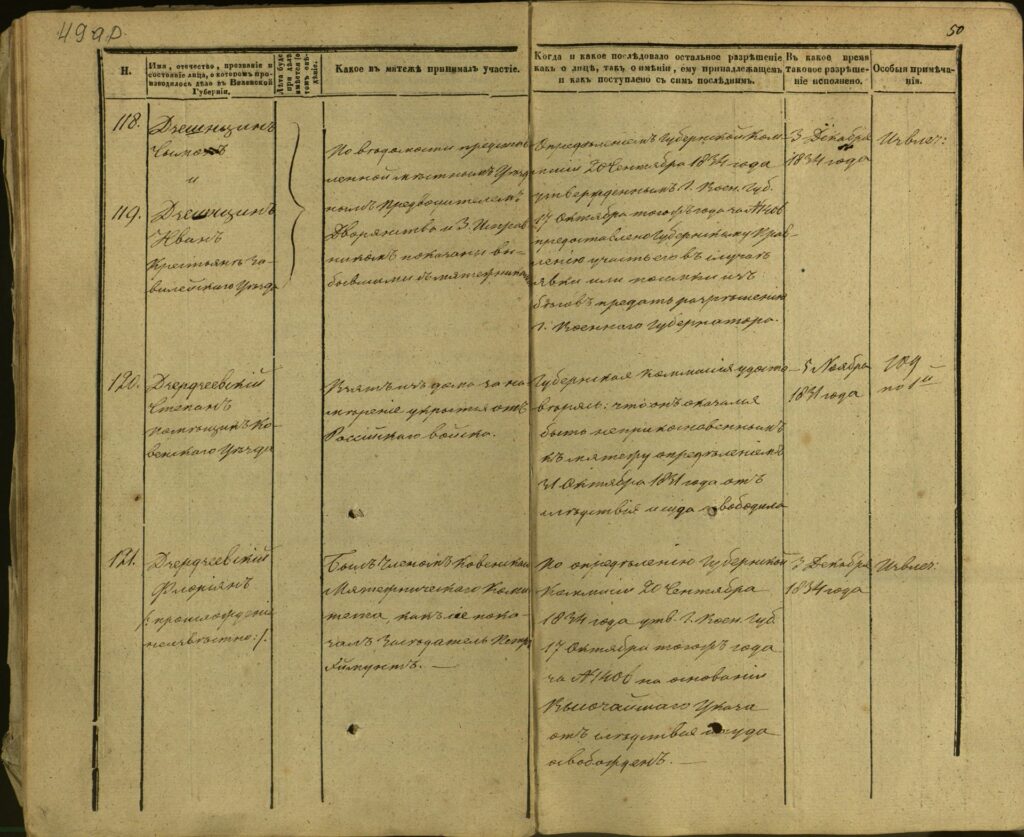 49 ар.
50
Н.
Имя, отчество, прозваніе и
состояніе лица, о которомъ про-
изводилось дѣло въ Виленской
Губерніи.
Лѣта буде
при дѣлѣ
имѣется о
томъ свѣ-
дѣніе.
Какое въ мятежѣ принималъ участіе.
Когда и какое послѣдовало остальное разрѣшеніе
какъ о лицѣ, такъ о имѣніи, ему принадлежащемъ
и какъ поступлено съ симъ послѣднимъ.
Въ какое время
таковое разрѣше-
ніе исполнено.
Особыя примѣча-
нія.
118.
и
119.
Иванъ
Крестьяне За-
вилейскаго Уѣзда
По вѣдомости представ-
ленной мѣстнымъ Уѣзд-
нымъ Предводителемъ
Дворянства и З. Исправ-
никомъ показаны вы-
бывшими къ мятежникамъ
Опредѣленіемъ Губернской Ком-
мисіи 20 Сентября 1834 года
утвержденнымъ Г. Воен. Губ.
17 Октября тогожъ года за № 1406
предоставлено Губернскому Прав-
ленію участь его въ случаѣ
явки или поимки изъ
бѣговъ предать разрѣшенію
Г. Военнаго Губернатора.
3 Декабря
1834 года
Извлеч:
120.
Степанъ
помѣщикъ Ко-
венскаго Уѣзда
Взятъ изъ дома за на-
мѣреніе укрыться отъ
Россійскаго войска.
Губернская Коммисія удосто-
вѣрясь: что онъ оказался
быть неприкосновеннымъ
къ мятежу опредѣленіемъ
31 Октября 1831 года отъ
слѣдствія и суда освободила
5 Ноября
1831 года
109
по 1й
121.
Флоріянъ
/: происхожденіе
неизвѣстно :/.
Былъ Членомъ Ковенскаго
Мятежническаго Коми-
тета, какъ пока-
залъ Засѣдатель
По опредѣленію Губернской
Коммисіи 20 Сентября
1834 года утв. Г. Воен. Губ.
17 Октября тогожъ года
за № 1406 на основаніи
Высочайшаго Указа
отъ слѣдствія и суда
освобожденъ.
3 Декабря
1834 года
Извлеч: